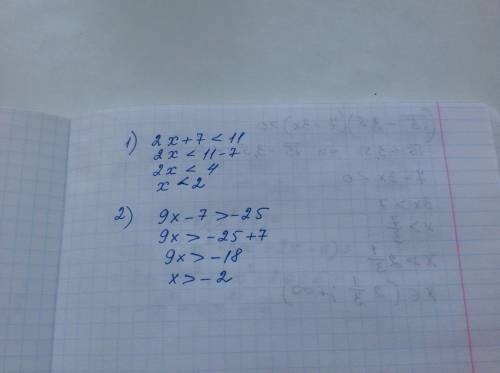 1) 2x+7<11
2x<11-7
2x<4
x<2
2) 9x-7>-25
9x>-25+7
9x>-18
x>-2